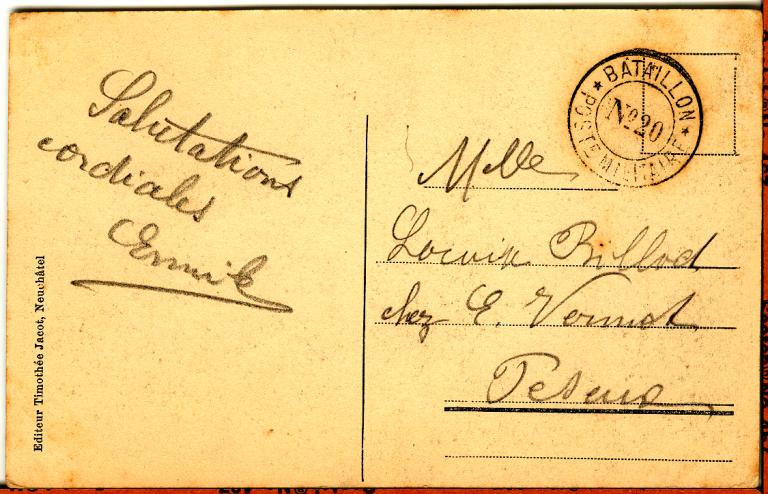 Salutations
cordiales
Emile
Editeur Timothée Jacot, Neuchâtel
★ BATAILLON ★
No 20
POSTE MILITAIRE
Melle
Louise Billod
chez E. Vermot
Peseux